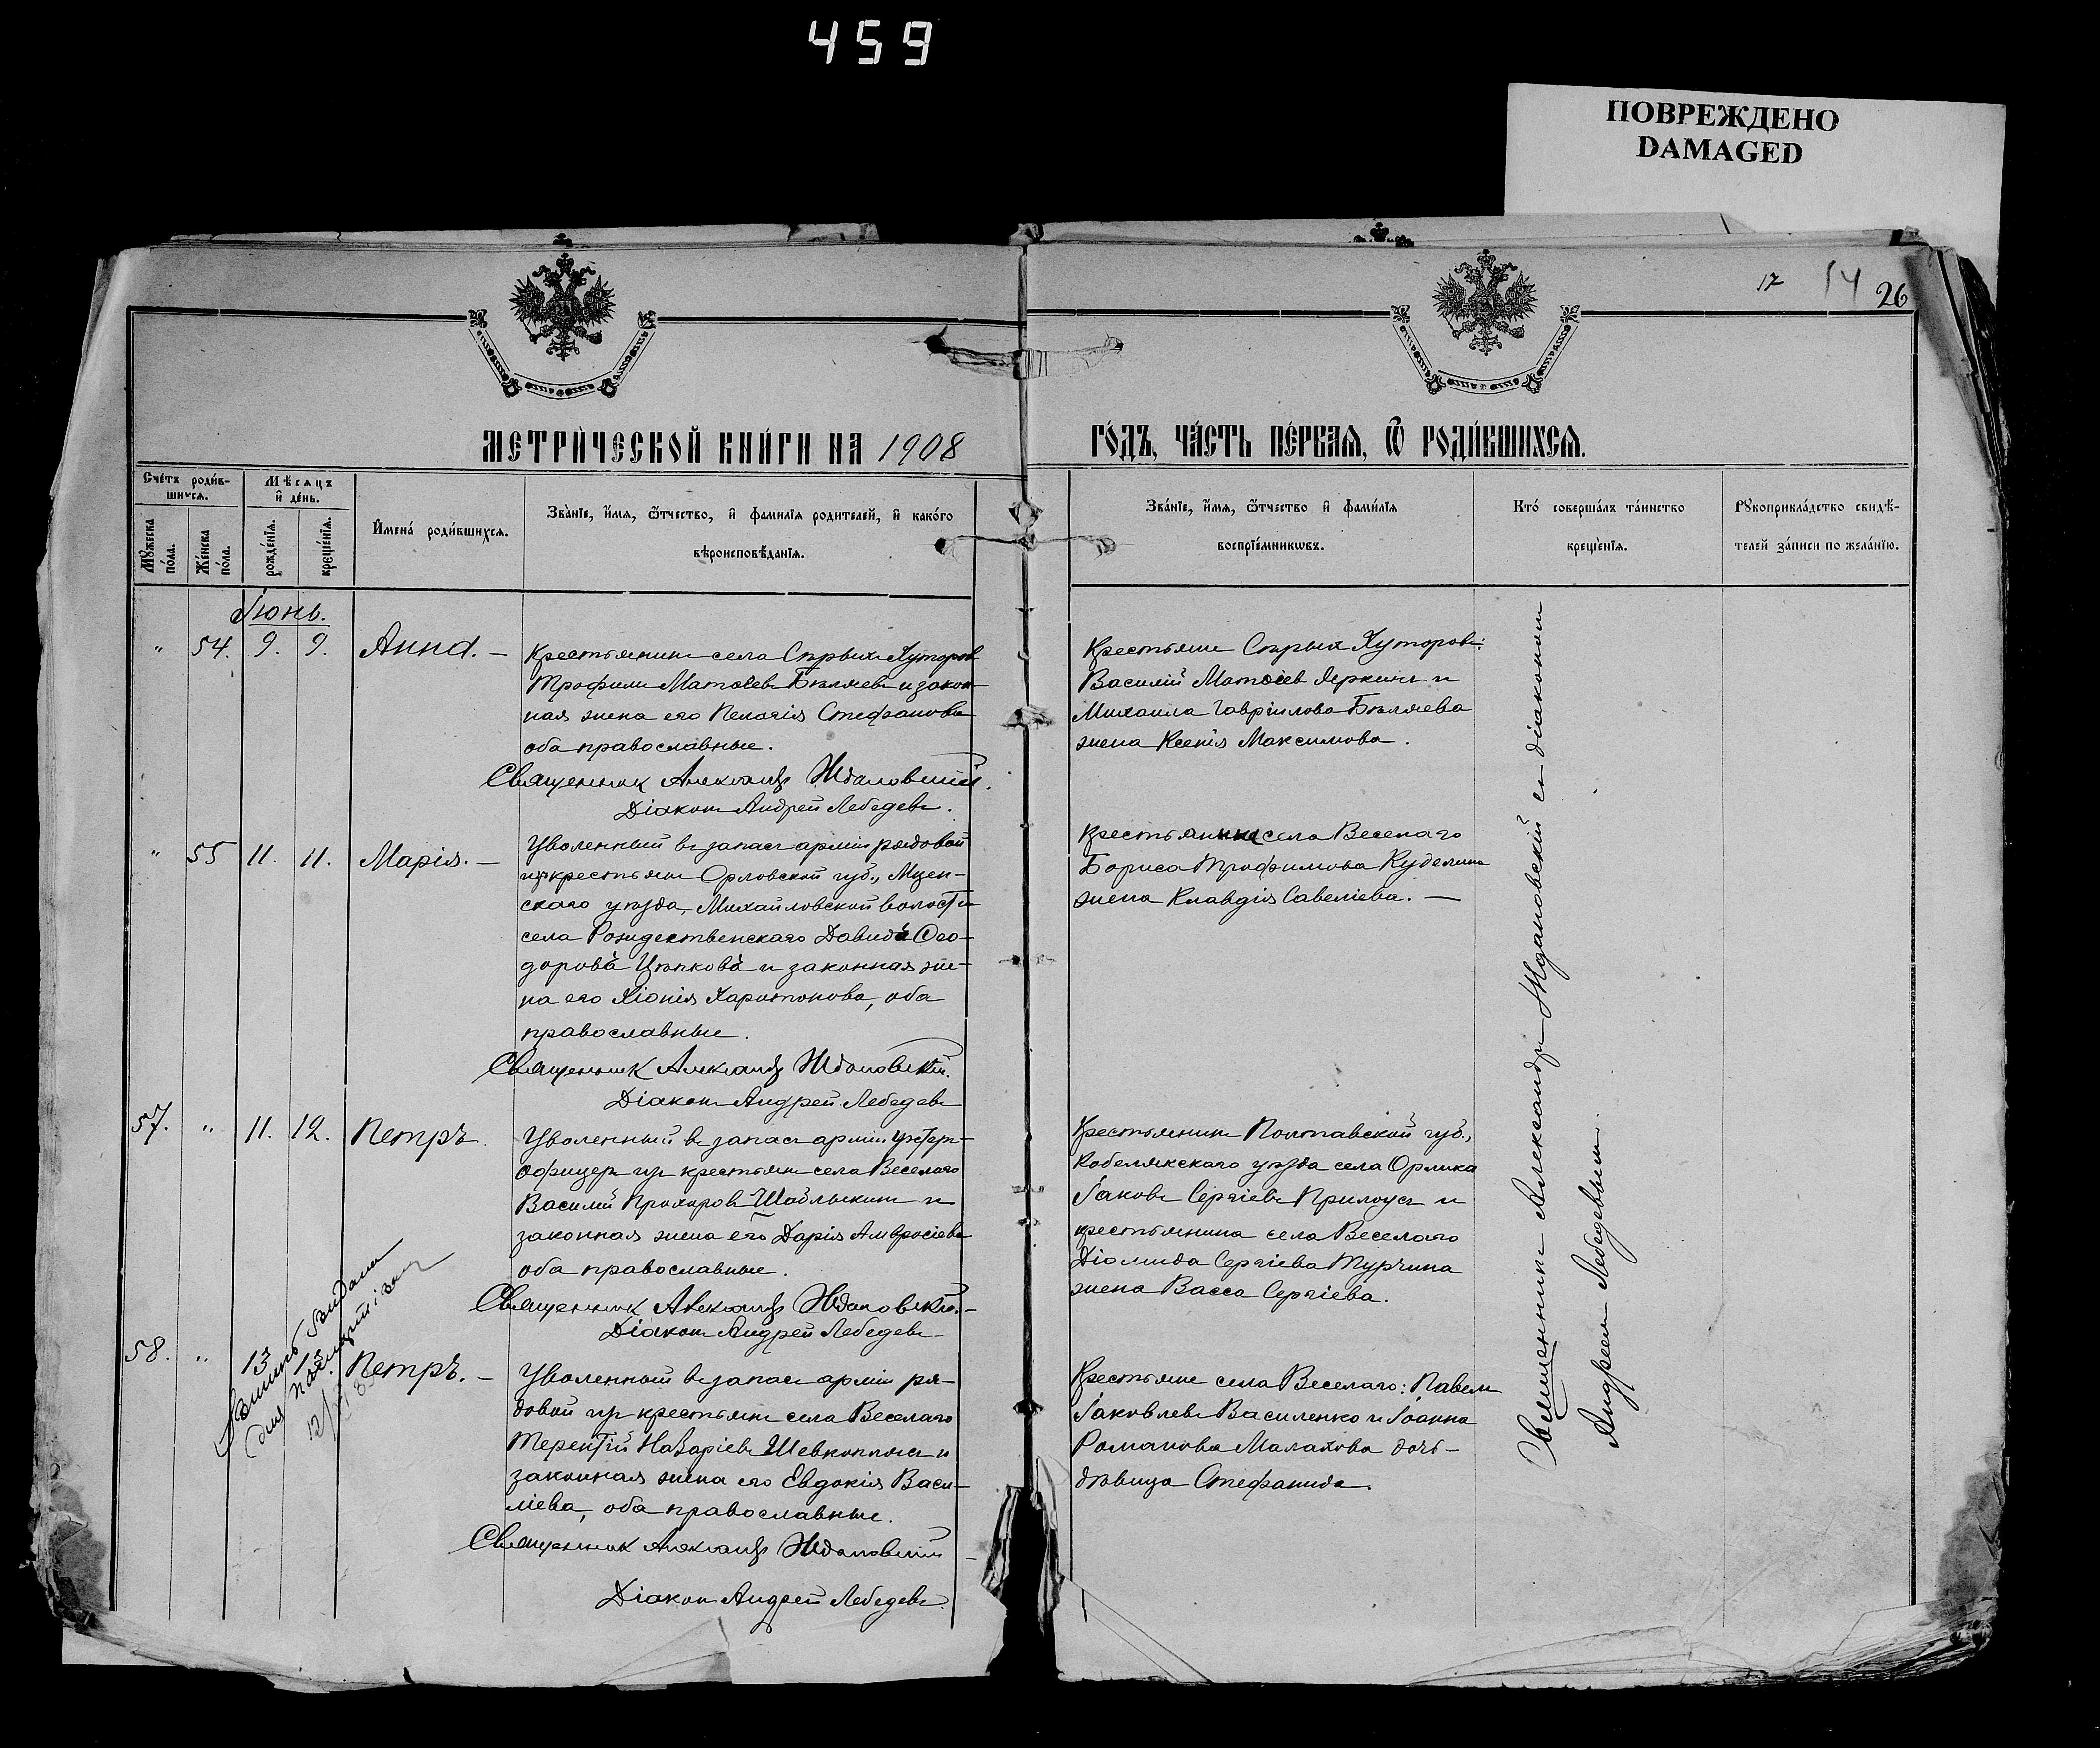 459
ПОВРЕЖДЕНО
DAMAGED
17 14 26
МЕТРИ́ЧЕСКОЙ КНИ́ГИ НА 1908
ГО́ДЪ, ЧА́СТЬ ПЕ́РВАЯ, Ѿ РОДИ́ВШИХСЯ.
Сче́тъ роди́в-
шихся.
Мѣ́сяцъ
и҆ де́нь.
Мꙋ́жеска
по́ла.
Же́нска
по́ла.
рожде́нїя.
креще́нїя.
И҆мена̀ роди́вшихся.
Зва́нїе, и҆́мя, ѻ҆́тчество, и҆ фами́лїя родителей, и҆ како́го
вѣроисповѣ́данїя.
Зва́нїе, и҆́мя, ѻ҆́тчество и҆ фами́лїя
воспрїе́мникѡвъ.
Кто́ соверша́лъ та́инство
креще́нїя.
Рꙋкоприкла́дство свидѣ́-
телей за́писи по жела́нїю.
Іюнь.
" 54. 9. 9. Анна. —
Крестьянинъ села Старыхъ Хуторовъ
Трофимъ Матѳіевъ Бѣляевъ и закон-
ная жена его Пелагія Стефанова
оба православные.
Священник Александръ Ждановскій.
Діаконъ Андрей Лебедевъ.
Крестьяне Старыхъ Хуторовъ:
Василій Матѳіев Яркинъ и
Михаила Гавріилова Бѣляева
жена Ксенія Максимова.
" 55 11. 11. Марія. —
Уволенный въ запасъ арміи рядовой
изъ крестьянъ Орловской губ., Мцен-
скаго уѣзда, Михайловской волости
села Рождественскаго Давидъ Ѳео-
доровъ Цѣпковъ и законная же-
на его Хіонія Харитонова, оба
православные.
Священник Александръ Ждановскій.
Діаконъ Андрей Лебедевъ
Крестьянина села Веселаго
Бориса Трофимова Куделина
жена Клавдія Савеліева. —
57. " 11. 12. Петръ
Уволенный въ запасъ арміи унтеръ-
офицеръ изъ крестьянъ села Веселаго
Василій Прохоровъ Шаблыкинъ и
законная жена его Дарія Амвросіева
оба православные.
Священник Александръ Ждановскій. —
Діаконъ Андрей Лебедевъ
Крестьянинъ Полтавской губ.,
Кобелякскаго уѣзда села Орлика
Іаковъ Сергіевъ Прилоусъ и
крестьянина села Веселаго
Діомида Сергіева Турчина
жена Васса Сергіева.
58. " 13 13. Петръ. —
Уволенный въ запасъ арміи ря-
довой изъ крестьянъ села Веселаго
Терентій Назаріевъ Шевкоплясъ и
законная жена его Евдокія Васи-
ліева, оба православные.
Священник Александръ Ждановскій
Діаконъ Андрей Лебедевъ.
Крестьяне села Веселаго: Павелъ
Іаковлевъ Василенко и Іоанна
Романова Малахова дочь-
дѣвица Стефанида.
выдана
для
Священникъ Александръ Ждановскій съ діакономъ
Андреемъ Лебедевымъ.